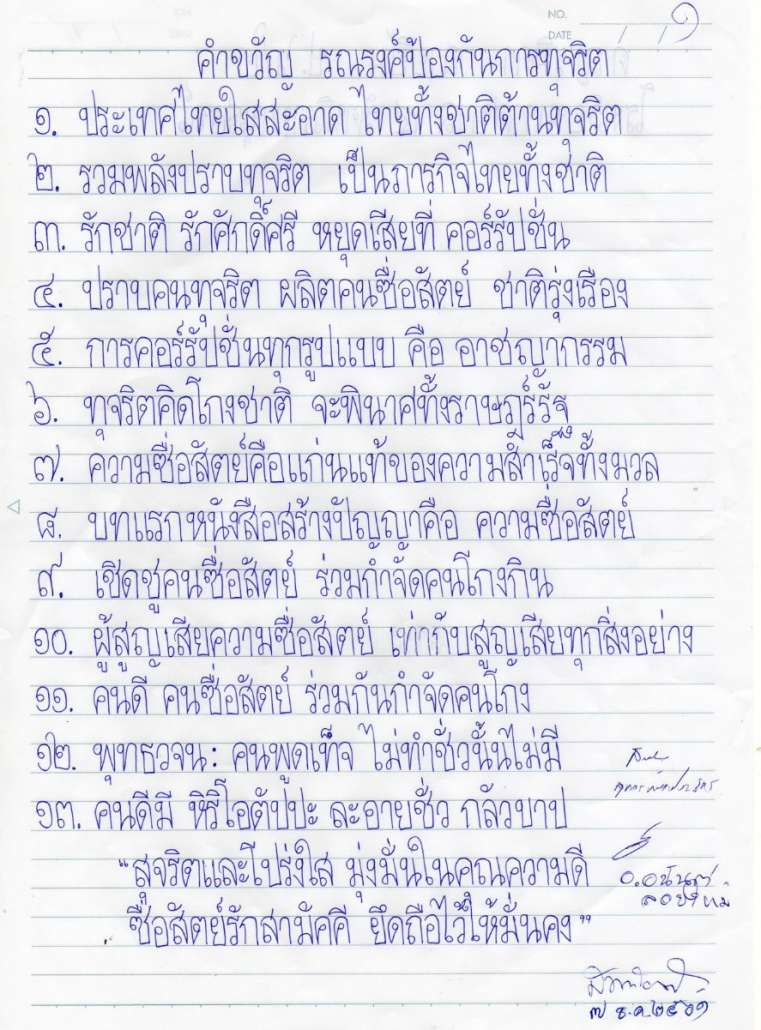 NO.
DATE / / ๑
คำขวัญ รณรงค์ป้องกันการทุจริต
๑. ประเทศไทยใสสะอาด ไทยทั้งชาติต้านทุจริต
๒. รวมพลังปราบทุจริต เป็นภารกิจไทยทั้งชาติ
๓. รักชาติ รักศักดิ์ศรี หยุดเสียที คอร์รัปชั่น
๔. ปราบคนทุจริต ผลิตคนซื่อสัตย์ ชาติรุ่งเรือง
๕. การคอร์รัปชั่นทุกรูปแบบ คือ อาชญากรรม
๖. ทุจริตคิดโกงชาติ จะพินาศทั้งราษฎร์รัฐ
๗. ความซื่อสัตย์คือแก่นแท้ของความสำเร็จทั้งมวล
๘. บทแรกหนังสือสร้างปัญญาคือ ความซื่อสัตย์
๙. เชิดชูคนซื่อสัตย์ ร่วมกำจัดคนโกงกิน
๑๐. ผู้สูญเสียความซื่อสัตย์ เท่ากับสูญเสียทุกสิ่งอย่าง
๑๑. คนดี คนซื่อสัตย์ ร่วมกันกำจัดคนโกง
๑๒. พุทธวจน: คนพูดเท็จ ไม่ทำชั่วนั้นไม่มี
๑๓. คนดีมี หิริโอตัปปะ ละอายชั่ว กลัวบาป
"สุจริตและโปร่งใส มุ่งมั่นในคุณความดี
ซื่อสัตย์รักสามัคคี ยึดถือไว้ให้มั่นคง"
๗ ธ.ค.๒๕๖๑